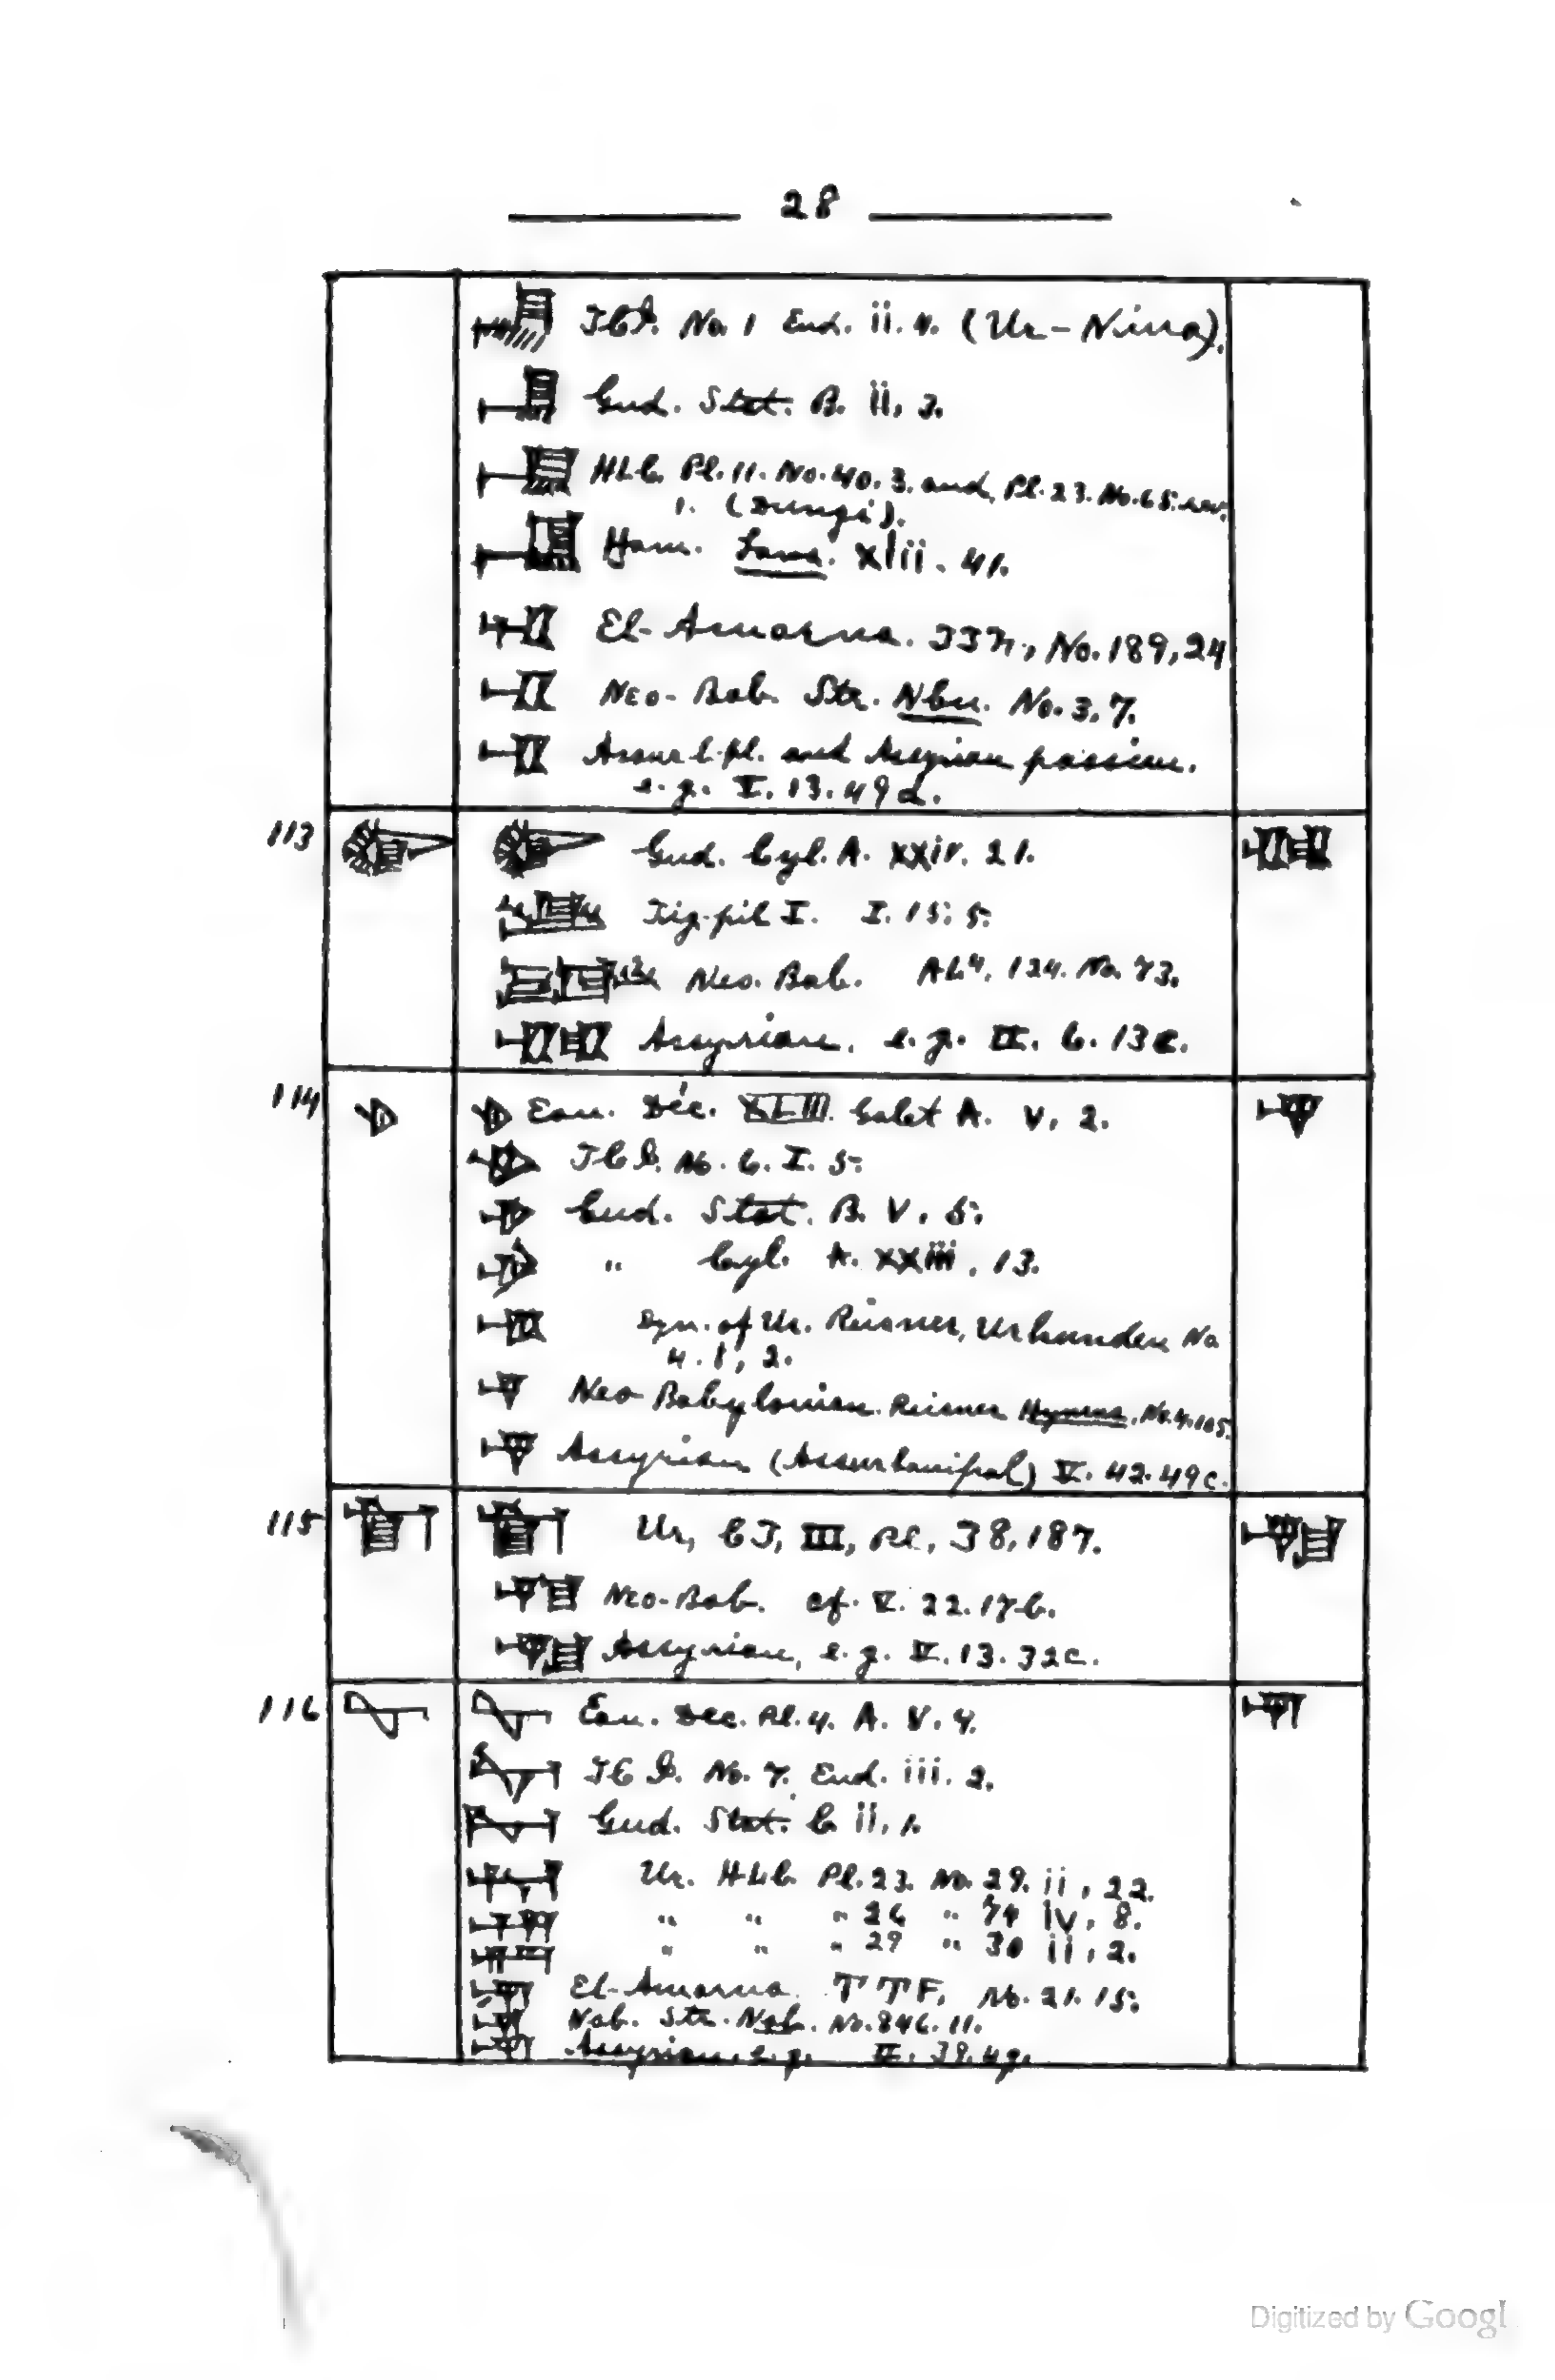 28
No. 1 End. ii. 4. (Ur-Nina).
Gud. Stat. B. ii, 3.
HLC. Pl. 11. No. 40. 3. and Pl. 23. No. 65. rev.
1. (Dungi).
Ham. Laws. xlii. 41.
El-Amarna. No. 189, 24
Neo-Bab. Str. Nbu. No. 3, 7.
and Assyrian passim.
e.g. I. 13. 49 d.
113
Gud. Cyl. A. xxiv. 21.
Tig-pil I. I. 15. 5.
Neo. Bab. AL4. 124. No. 73.
Assyrian, e.g. II. 6. 13 c.
114
Ean. Déc. XLIII. Galet A. V, 2.
No. 6. I. 5.
Gud. Stat. B. V. 5.
" Cyl. A. xxiii, 13.
Dyn. of Ur. Reisner, Urkunden No
4. 1, 2.
Neo Babylonian. Reisner Hymns, No. 4. 105.
Assyrian (Assurbanipal) V. 42. 49 c.
115
Ur, CT, III, Pl, 38, 187.
Neo-Bab. cf. V. 22. 17 b.
Assyrian, e.g. 13. 32 c.
116
Ean. Dec. Pl. 4. A. V. 4.
No. 7. End. iii. 2.
Gud. Stat. C ii, 1.
Ur. HLC. Pl. 23. No. 29. ii, 22.
" " " 26 " 74 iv, 8.
" " " 29 " 30 ii, 2.
El-Amarna. No. 21. 15.
Nab. Str. No. 846. 11.
Assyrian, e.g. II. 39. 4 g.
Digitized by Googl